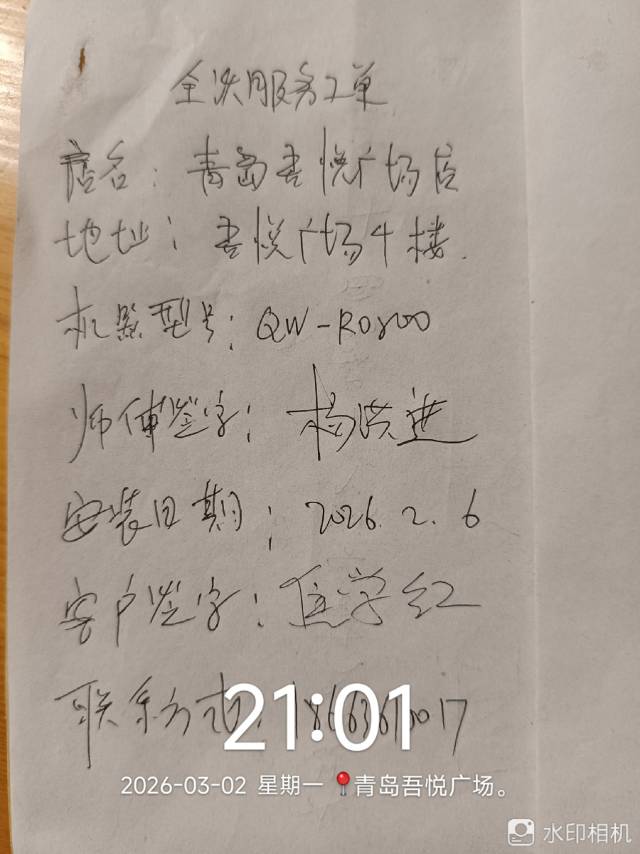 全沃服务工单
店名：青岛吾悦广场店
地址：吾悦广场4楼.
机器型号：QW-R0800
师傅签字：杨洪进
安装日期：2026.2.6
客户签字：学红
联系方式：
21:01
2026-03-02 星期一 📍青岛吾悦广场。
水印相机